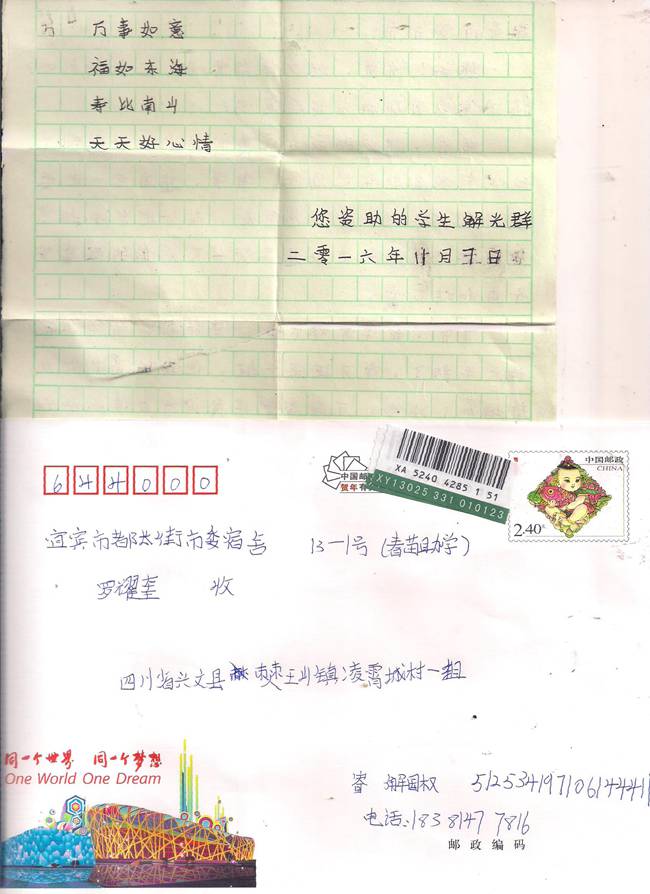 万事如意
福如东海
寿比南山
天天好心情
您资助的学生解光群
二零一六年11月于日
644000
中国邮
贺年有
XA 5240 4285 1 51
XY13025 331 010123
中国邮政
CHINA
2.40元
宜宾市都长街市委宿舍 13-1号(春苗助学)
罗耀奎 收
四川省兴文县 僰王山镇凌霄城村一组
同一个世界 同一个梦想
One World One Dream
寄 解国权 512534197106144411
电话:183 8147 7816
邮政编码